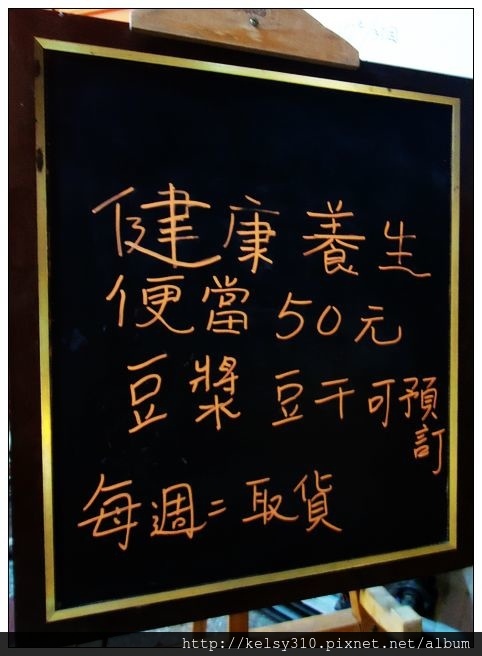 健康養生
便當50元
豆漿 豆干可預訂
每週二取貨
http://kelsy310.pixnet.net/album